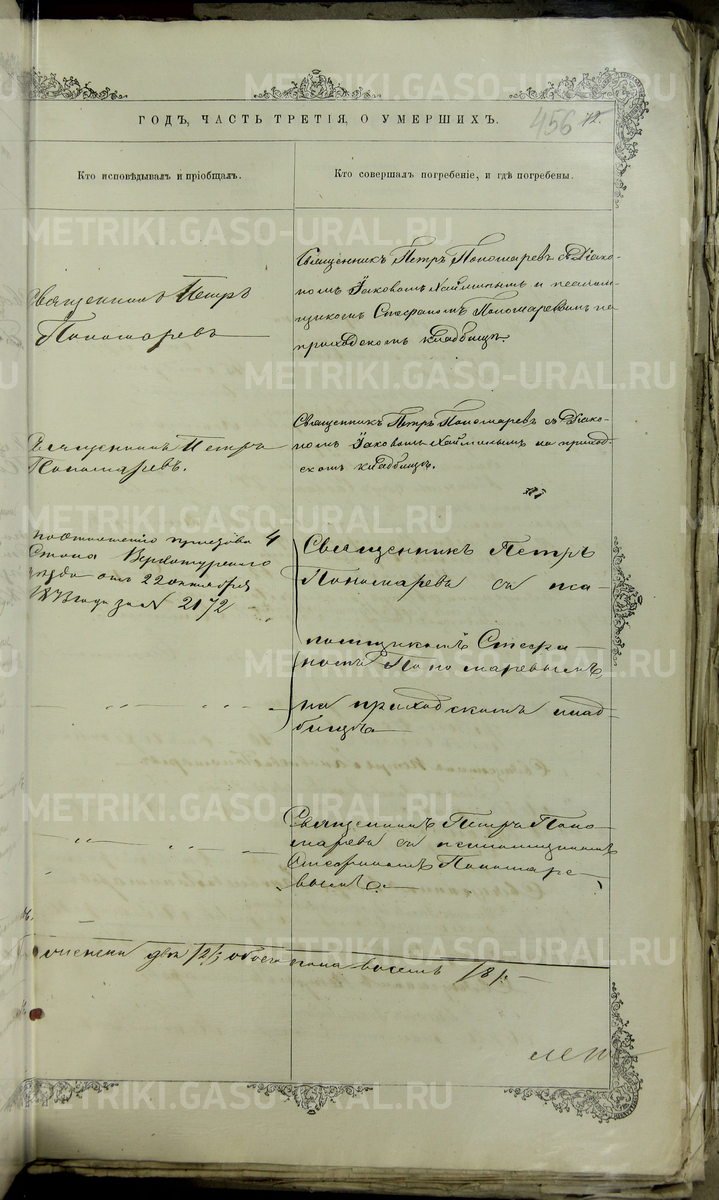 ГОДЪ, ЧАСТЬ ТРЕТІЯ, О УМЕРШИХЪ.
456
12.
Кто исповѣдывалъ и пріобщалъ.
Кто совершалъ погребеніе, и гдѣ погребены.
Священникъ Петръ
Пономаревъ
Священникъ Петръ Пономаревъ съ Діако-
номъ Іаковомъ Хайминымъ и псалом-
щикомъ Стефаномъ Пономаревымъ на
приходскомъ кладбищѣ.
Священникъ Петръ
Пономаревъ.
Священникъ Петръ Пономаревъ съ Діако-
номъ Іаковомъ Хайминымъ на приход-
скомъ кладбищѣ.
по отношенію пристава 4
Стана Верхотурскаго
уѣзда отъ 22 октября
1873 года за № 2172
Священникъ Петръ
Пономаревъ съ пса-
ломщикомъ Стефа
номъ Пономаревымъ
на приходскомъ клад-
бищѣ
Священникъ Петръ Поно-
маревъ съ псаломщикомъ
Стефаномъ Пономаре-
вымъ.
женска два /2/, обоего пола восемь /8/.
METRIKI.GASO-URAL.RU